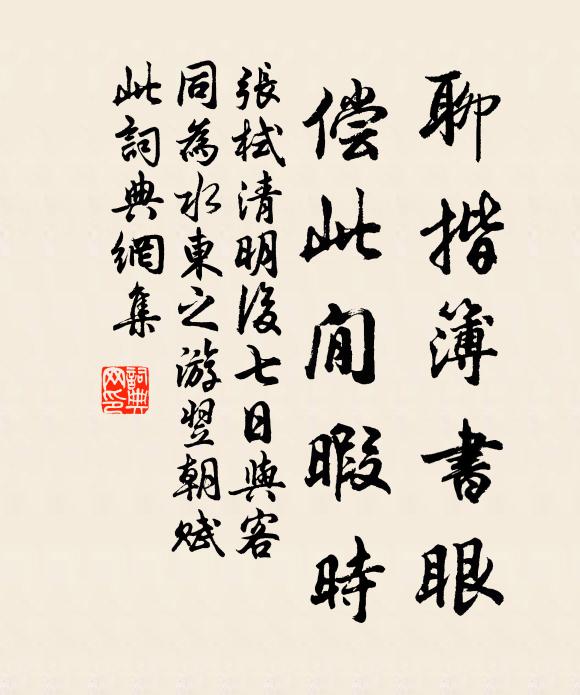 聊揩簿書眼
偿此閒暇時
張栻清明後七日與客
同為水東之游翌朝賦
此詞典網集
詞典網印